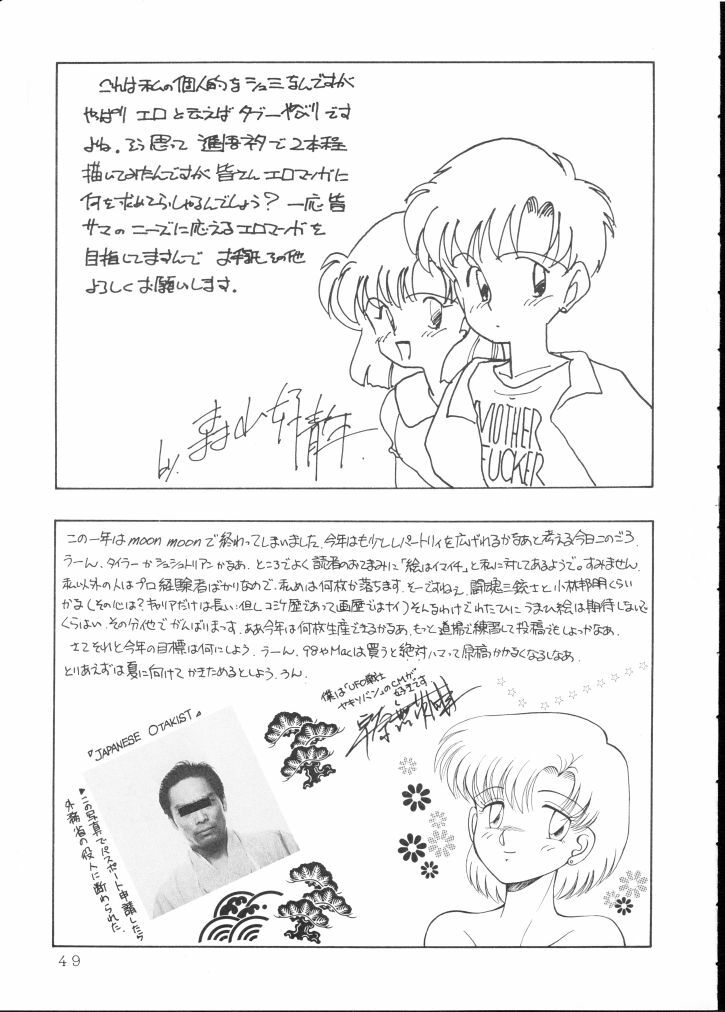 これは私の個人的なシュミなんですが
やっぱり エロと云えばタブーやぶりです
よね。そう思って 近互ネタで2本程
描いてみたんですが 皆さん エロマンガに
何を求めてらっしゃるんでしょう? 一応 皆
サマの ニーズに応えるエロマンガを
目指してますんで お手紙その他
よろしく お願いします。
by.
MOTHER
FUCKER
この一年はmoon moonで終わってしまいました。今年はも少ししレパートリィを広げれるかなあと考える今日このごろ。
うーん、タイラーかシュシュトリアンかなあ。ところでよく読者のおこまみに「絵はイマイチ」と私に対してあるようで。すみません。
私以外の人はプロ経験者ばかりなので、私めは何枚か落ちます。そーですねぇ、闘魂三銃士と小林邦明くらい
かな(その心は?キャリアだけは長い:但しコミケ歴であって画歴ではナイ)そんなわけでわたしに うまひ絵は期待しないで
くらはい。その分他でがんばりまっす。ああ今年は何枚生産できるかなあ。もっと道場で練習して投稿でもしよっかなあ。
さてそれと今年の目標は何にしよう。うーん。98やMacは買うと絶対ハマって原稿かかなくなるしなあ。
とりあえずは夏に向けて かきためるとしよう。うん。
僕は「UFO戦士
ヤキソバン」のCMが
好きです
『JAPANESE OTAKIST』
▶この写真でパスポート申請したら
外務省の役人に断められた。
49